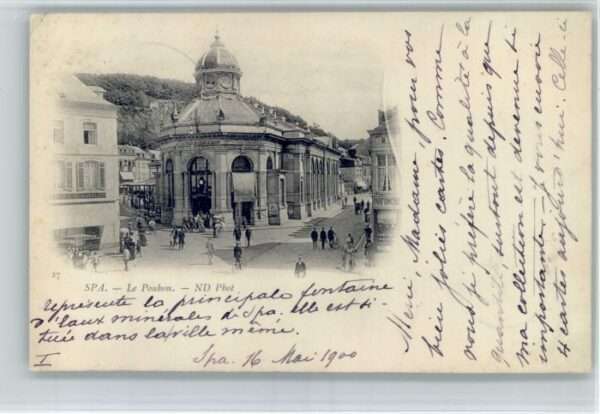 27
SPA. - Le Pouhon. - ND Phot
représente la principale fontaine
d'eaux minérales de Spa. Elle est si-
tuée dans la ville même.
Spa, 16 Mai 1900
I
Merci, Madame, pour vos
bien jolies cartes. Comme
vous je préfère la qualité à la
quantité surtout depuis que
ma collection est devenue si
importante. Je vous envoie
4 cartes aujourd'hui. Celle-ci